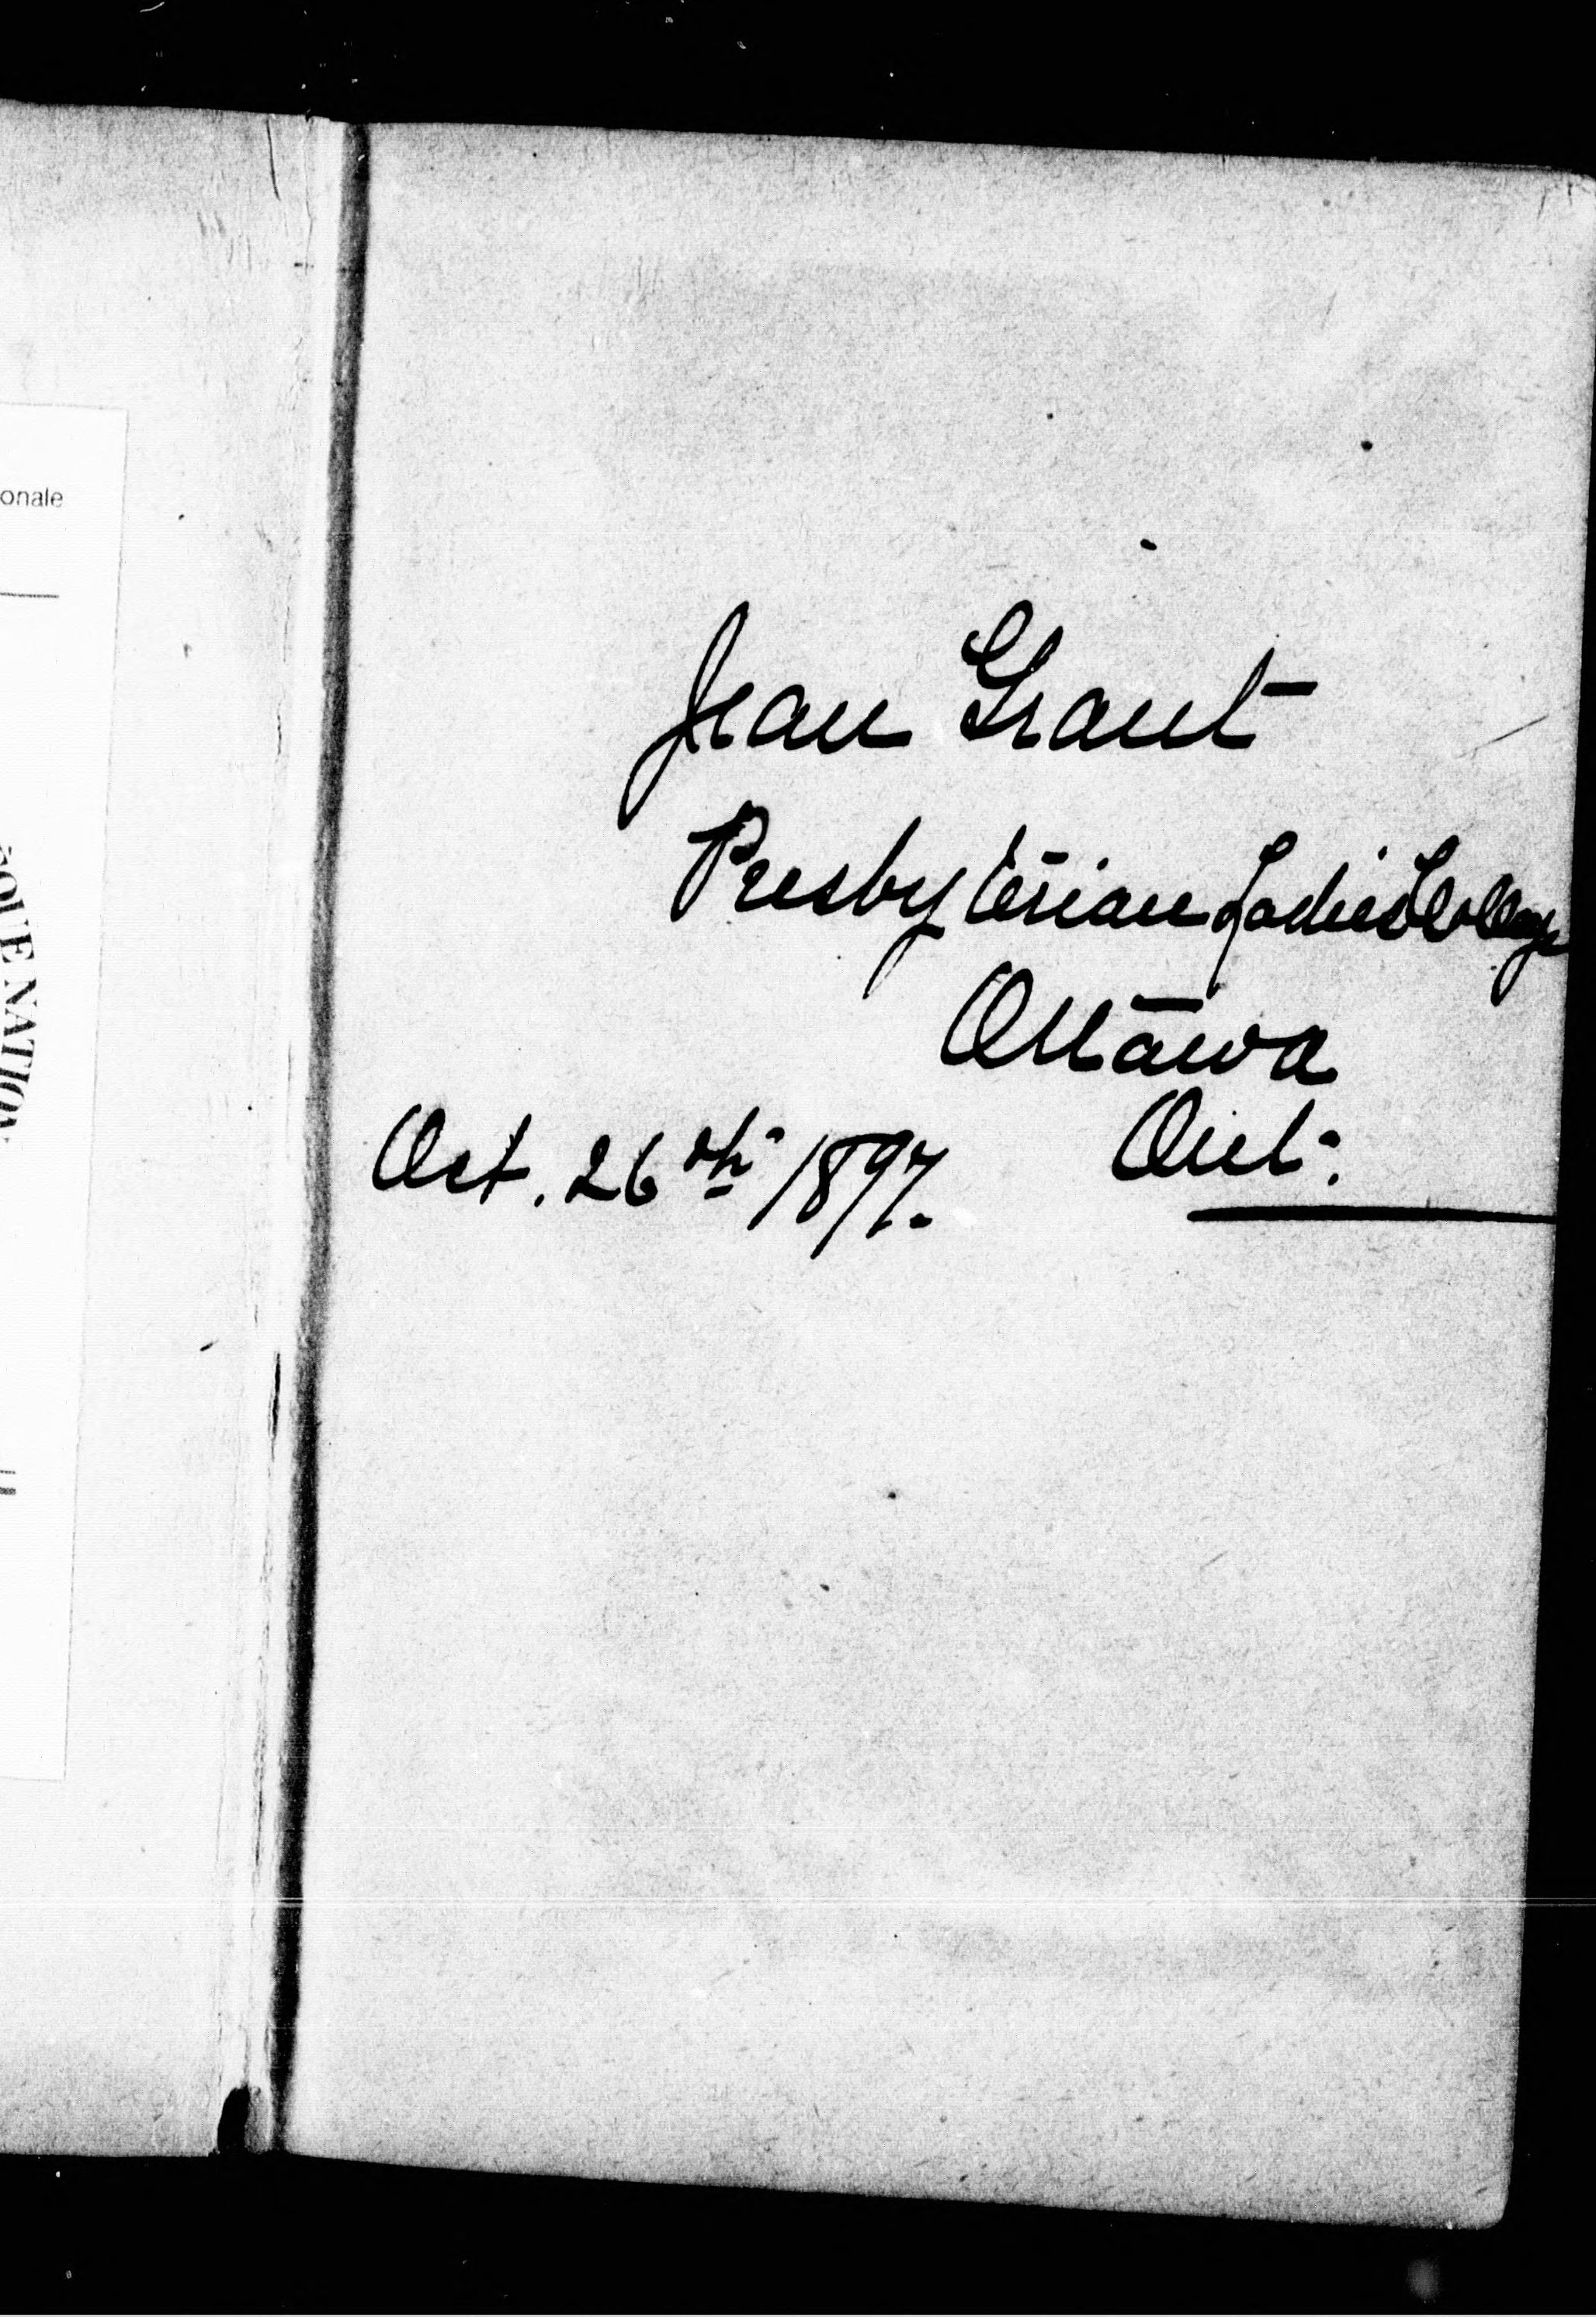 onale
QUE NATION
Jean Grant
Presbyterian Ladies College
Ottawa
Oct. 26th 1897.
Ont.